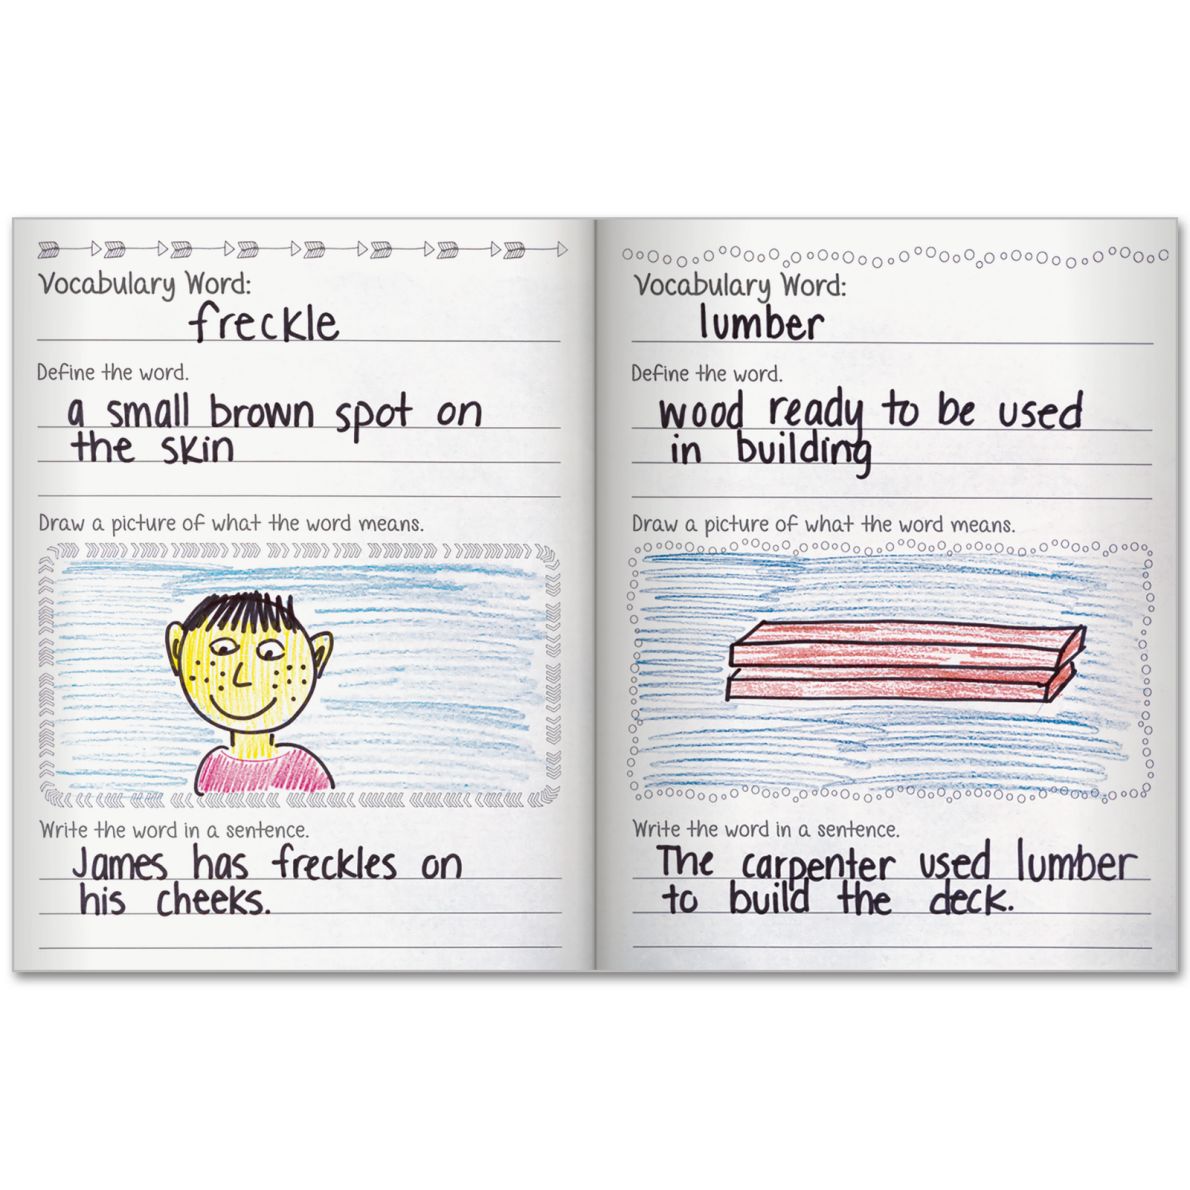 Vocabulary Word:
freckle
Define the word.
a small brown spot on
the skin
Draw a picture of what the word means.
Write the word in a sentence.
James has freckles on
his cheeks.
Vocabulary Word:
lumber
Define the word.
wood ready to be used
in building
Draw a picture of what the word means.
Write the word in a sentence.
The carpenter used lumber
to build the deck.